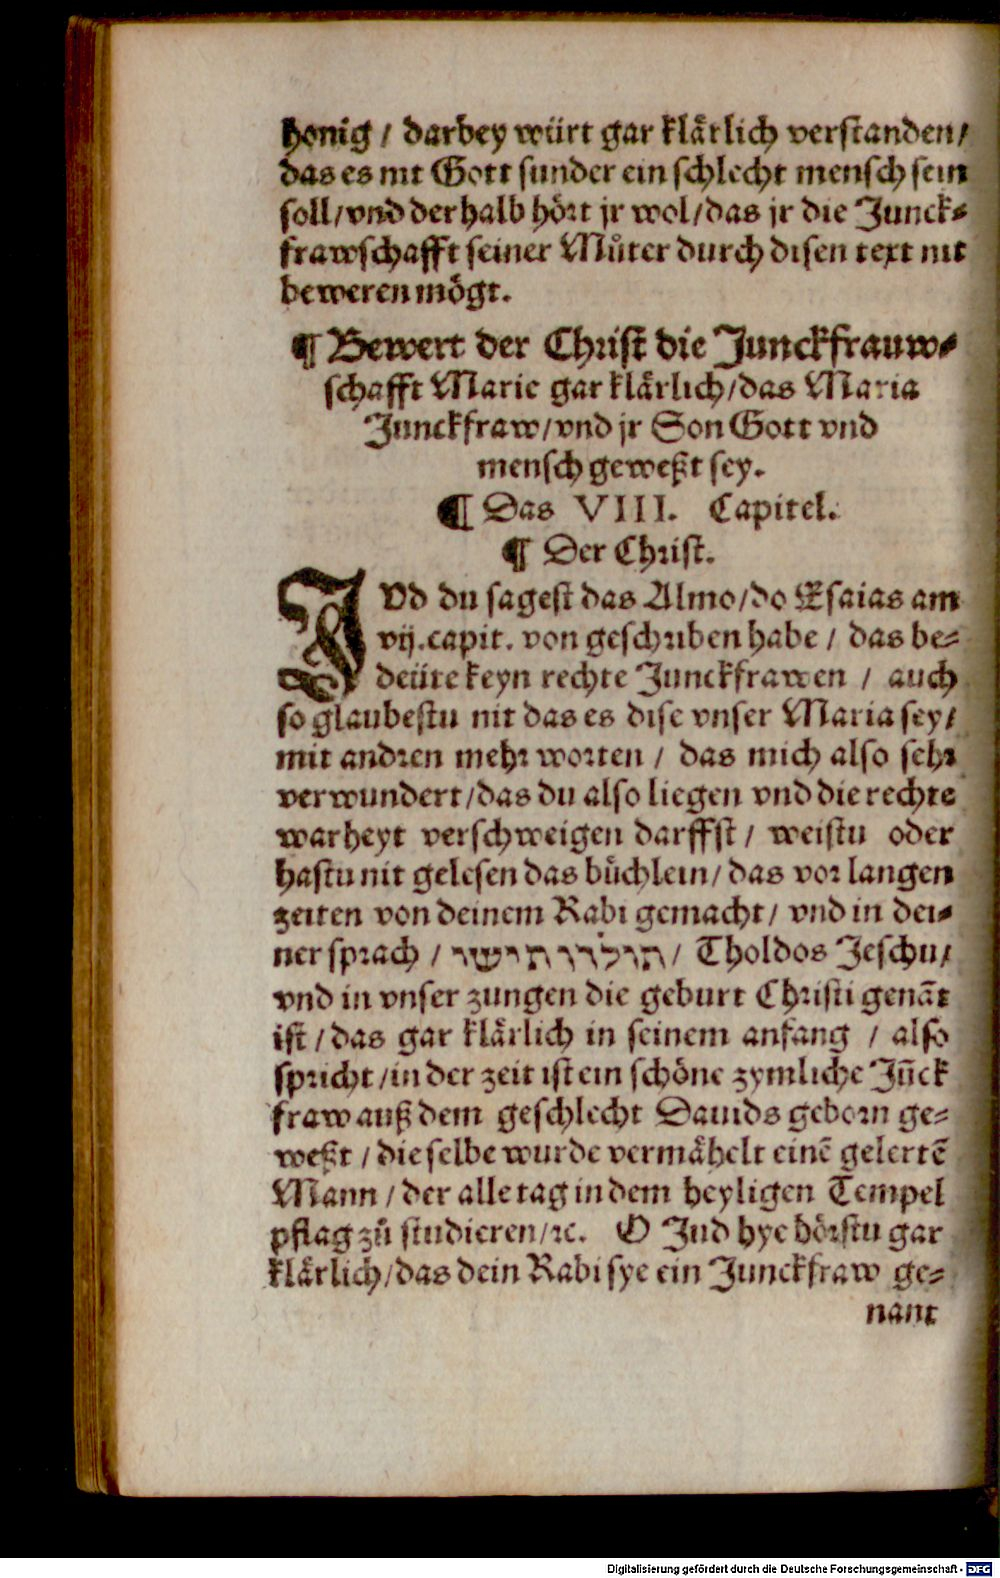 honig / darbey würt gar klårlich verstanden /
das es nit Gott sunder ein schlecht mensch sein
soll / vnd derhalb hört jr wol / das jr die Junck⸗
frawschafft seiner Můter durch disen text nit
beweren mögt.
¶ Bewert der Christ die Junckfrauw⸗
schafft Marie gar klårlich / das Maria
Junckfraw / vnd jr Son Gott vnd
mensch geweßt sey.
¶ Das VIII. Capitel.
¶ Der Christ.
JVd du sagest das Almo / do Esaias am
vij. capit. von geschriben habe / das be⸗
deüte keyn rechte Junckfrawen / auch
so glaubestu nit das es dise vnser Maria sey /
mit andren mehr worten / das mich also sehr
verwundert / das du also liegen vnd die rechte
warheyt verschweigen darffst / weistu oder
hastu nit gelesen das bůchlein / das vor langen
zeiten von deinem Rabi gemacht / vnd in dei⸗
ner sprach / תולדות ישו / Tholdos Jeschu /
vnd in vnser zungen die geburt Christi genãt
ist / das gar klårlich in seinem anfang / also
spricht / in der zeit ist ein schöne zymliche Jũck
fraw auß dem geschlecht Dauids geborn ge⸗
weßt / die selbe wurde vermåhelt einẽ gelertẽ
Mann / der alle tag in dem heyligen Tempel
pflag zů studieren / ꝛc. O Jud hye hörstu gar
klårlich / das dein Rabi sye ein Junckfraw ge⸗
nant
Digitalisierung gefördert durch die Deutsche Forschungsgemeinschaft - DFG